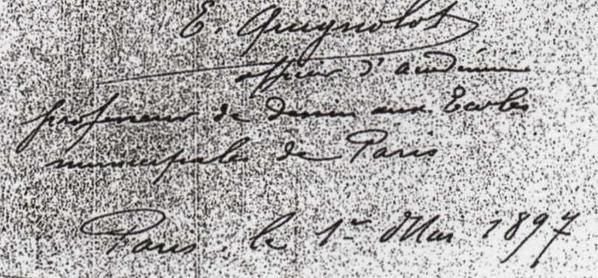 E. Guignolot
officier d'académie
professeur de dessin aux Ecoles
municipales de Paris
Paris, le 1er Mai 1897